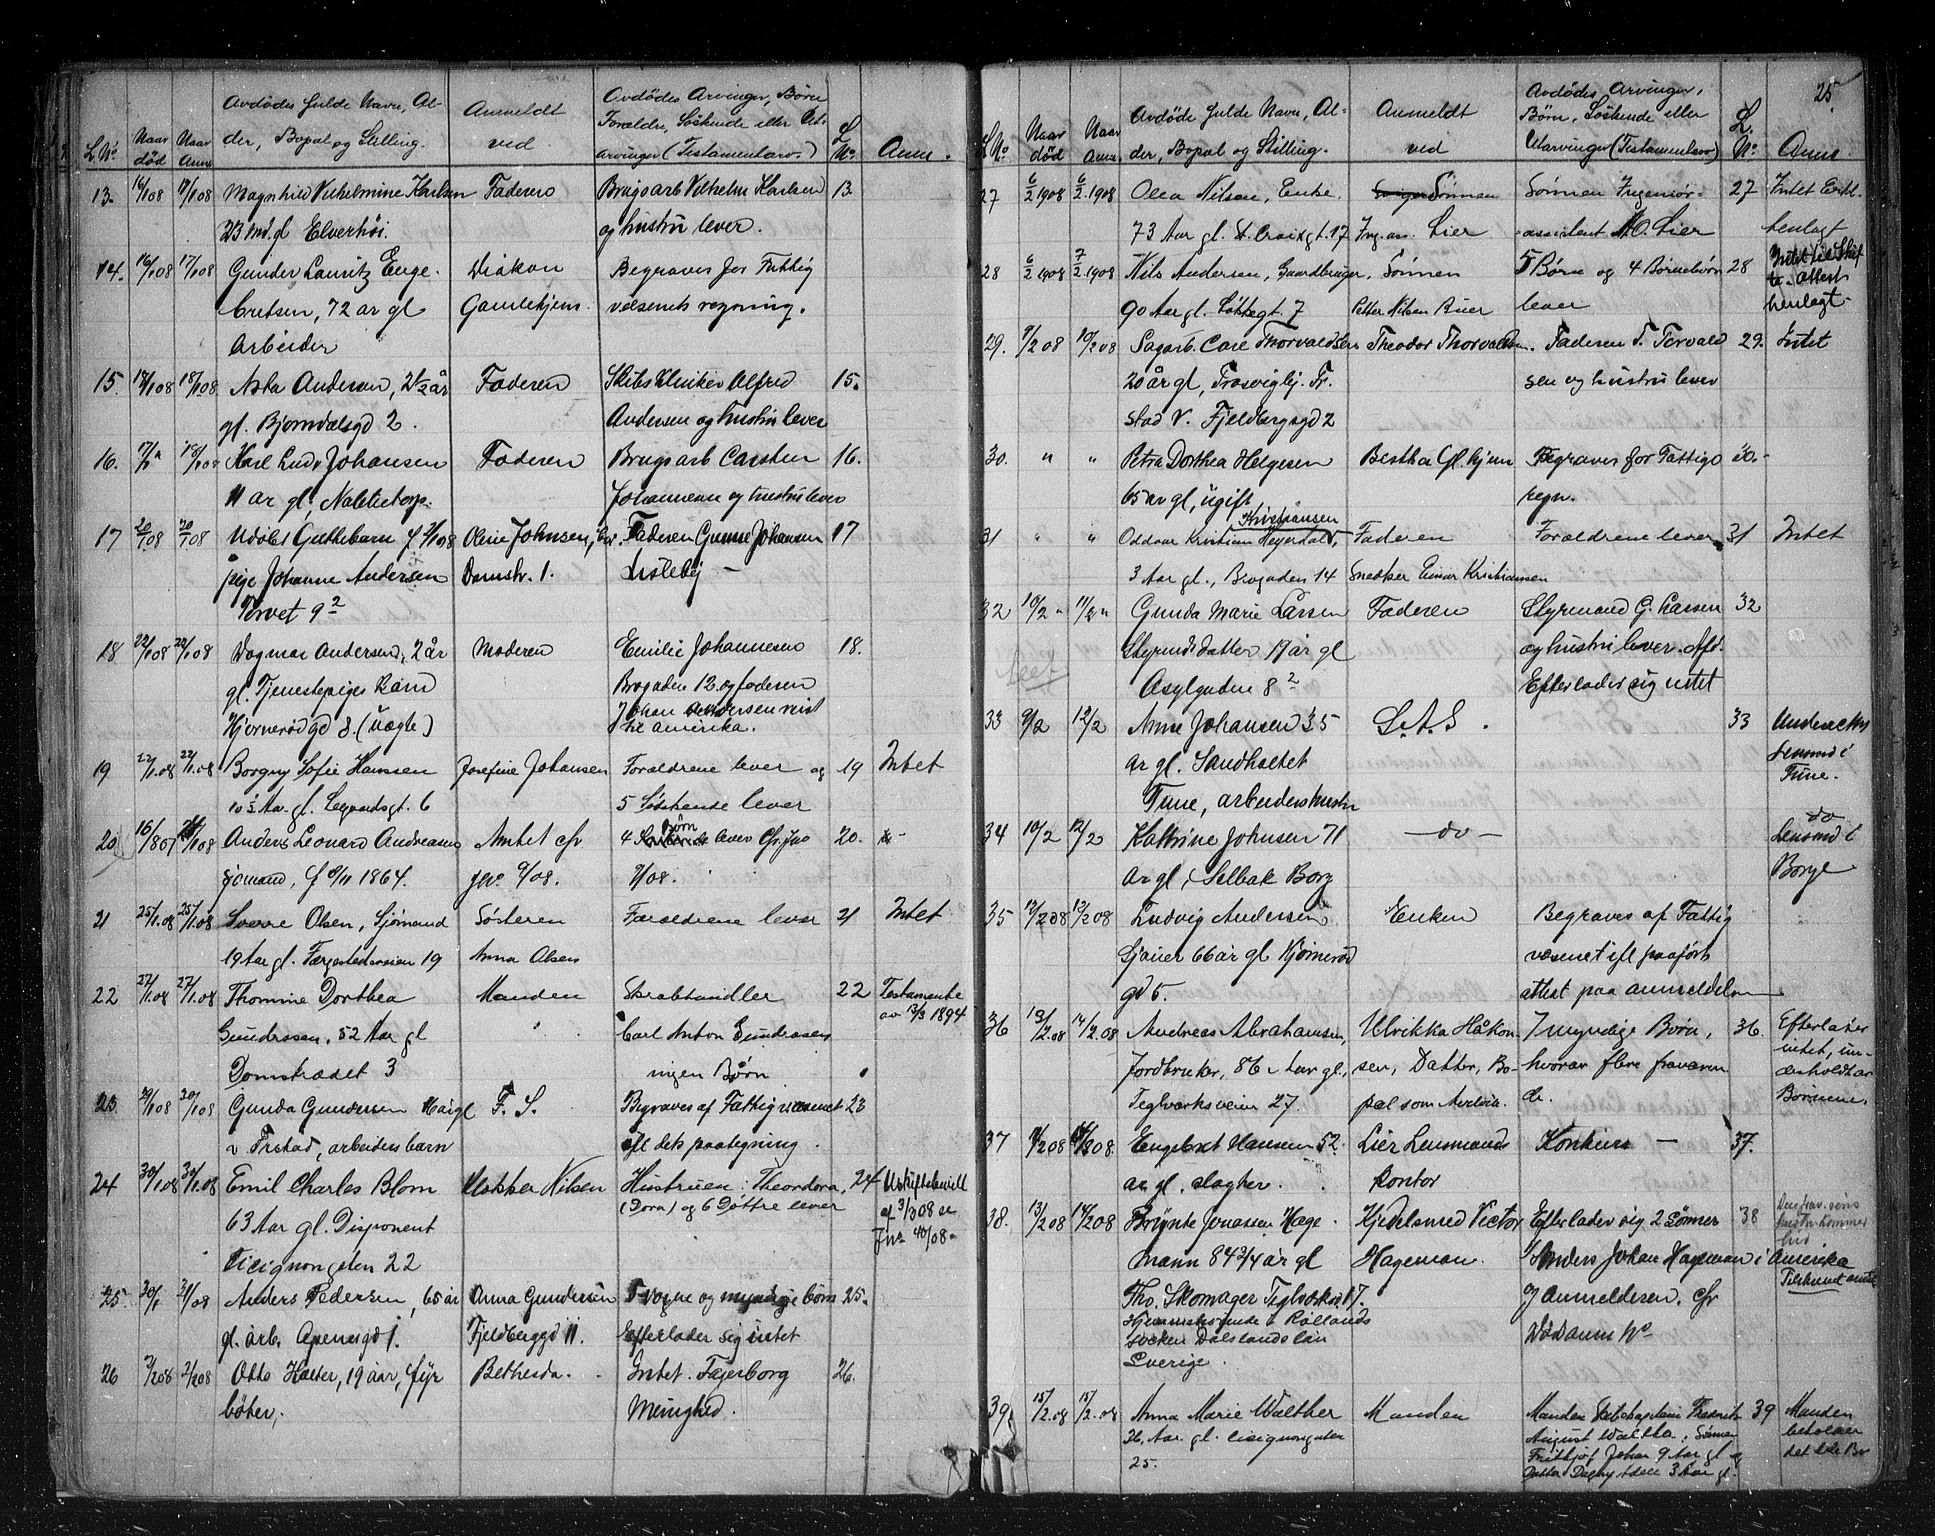 L.No. Naar død Naar Anm. Avdødes fulde Navn, Alder, Bopæl og Stilling. Anmeldt ved. Avdødes Arvinger, Børn Forældre, Søskende eller Ut-arvinger (Testamentarv.) L. No. Anm.
13. 16/1 08 17/1 08 Magnhild Vilhelmine Karlsen Faderen Brugsarb Vilhelm Karlsen 13.
2/3 Md. gl Elverhøi. og hustru lever.
14. 16/1 08 17/1 08 Gunder Lauritz Enge- Diakon Begraves for Fattig
bretsen, 72 år gl Gamlehjem. vesenets regning.
Arbeider
15 18/1 08 18/1 08 Asta Andersen, 2 1/2 år Faderen Skibsklinker Alfred 15.
gl. Bjørndalsgd 2. Andersen og hustru lever
16. 17/1 " 18/1 08 Karl Ludv Johansen Faderen Brugsarb Carsten 16.
11 år gl. Nabbetorp. Johannesen og hustru lever
17 20/1 08 20/1 08 Udøbt Guttebarn f 2/1 08 Oline Johnsen, Faderen Gunne Johansen 17
pige Johanne Andersen Damstr. 1. Lisleby —
Torvet 9²
18 22/1 08 22/1 08 Dagmar Andersen, 2 år Moderen Emilie Johannesen 18.
gl. Tjenestepiges Barn Brogaden 12 og faderen
Hjørnerødgd 8. (uægte) Johan Andersen reist
til Amerika.
19 22/1.08 22/1.08 Borgny Sofie Hansen Josefine Johansen Forældrene lever og 19 Intet
10 1/2 Aar. gl. Legendsgt. 6 5 Søskende lever
20 16/8 07 08 Anders Leonard Andreasen Amtet cfr 4 Børn lever Cfr Jno 20.
sjømand, f 9/11 1864. Jno. 9/08. 9/08.
21 25/1.08 25/1.08 Sverre Olsen, Sjømand Søsteren Forældrene lever 21 Intet
19 Aar gl. Færgestedsveien 19 Anna Olsen
22 27/1.08 27/1.08 Thomine Dorthea Manden Skrabhandler 22 Testamente
Gundersen, 52 Aar gl " Carl Anton Gundersen av 13/3 1894
Domstrædet 3 ingen Børn
23 29/1 08 30/1 08 Gunda Gundersen F. S. Begraves af Fattigvæsenet 23
v Frstad, arbeiders barn ifl dets paategning.
24 30/1.08 30/1.08 Emil Charles Blom Nilsen Hustruen: Theordora, 24 Uskiftebevill
63 Aar gl. Disponent (Dora) og 6 Døttre lever af 3/2 08 se
Cicignongaten 22 Jno 40/08
25. 30/1 08 Anders Pedersen, 65 år Anna Gundersen Fvogne og myndige børn 25.
gl. arb. Apenesgd 1. Fjeldberggd 11. Efterlader sig intet
26 2/2 08 2/2 08 Otto Halter, 19 aar, fyr Bethesda. Intet. Fagerborg 26.
bøter. Menighed.
25.
L.No. Naar død Naar Anm. Avdøde fulde Navn, Al-der, Bopæl og Stilling. Anmeldt ved Avdødes Arvinger, Børn, Søskende eller Utarvinger (Testamentarv) L. No. Anm.
27 6/2 1908 6/2.1908 Olea Nilsen, Enke. Sønnen Sønnen Ingeniør- 27 Intet Erkl.
73 Aar gl. St. Croixgt. 17 Ing. as. Lier assistent N.O. Lier henlagt
28 6/2 1908 7/2.1908 Nils Andersen, Gaardbruger, Sønnen 5 Børn og 4 Børnebørn 28 Intet til Skif
90 Aar gl. Løkkegt. 7 Petter Nilsen Buer lever te. Attest henlagt.
29. 9/2 08 10/2 08 Sagarb. Carl Thorvaldsen Theodor Thorvaldsen. Faderen T. Torvald 29. Intet
20 år gl, Trosvigbj. Fr. sen og hustru lever
stad V. Fjeldbergsgd 2
30. " " Petra Dorthea Helgesen Bestha Gl. hjem Begraves for Fattigv 30.
65 år gl, ugift regn.
31 " " Oddvar Kristian Heyerdal Kristiansen, Faderen Forældrene lever 31 Intet
3 Aar gl., Brogaden 14 Snedker Einar Kristiansen
32 10/2 " 11/2 " Gunda Marie Larsen Faderen Styrmand G. Larsen 32
Styrmds datter 17 år gl og hustru lever. Afd.
Asylgaden 8² Efterlader sig intet
33 9/2 12/2 Anne Johansen 35 S.A.S. 33
år gl. Sandholtet Lensmd i
Tune, arbeiders hustru Tune.
34 10/2 12/2 Kathrine Johnsen 71 — do — do
år gl, Selbak Borg Lensmd i
Borge
35 12/2 08 13/2 08 Ludvig Andersen Enken Begraves af Fattig
Sjauer 66 år gl Hjørnerød væsenet ifl paaført
gd 5. attest paa anmeldelsen
36 13/2.08 14/2.08 Andreas Abrahamsen, Ulrikka Håkon- 7 myndige Børn, 36. Efterlater
Jordbruker, 86 Aar gl., sen, Datter, Bo- hvorav flere fraværen intet, un-
Teglværksveien 27. pæl som Avdøde. de. derholdt av Børnene.
37 9/2 08 08 Engebret Hansen 52 Lier Lensmands Konkurs — 37.
år gl. slagter. kontor
38. 13/2 08 14/2 08 Brynte Jonassen Hage- Kjedelsmed Victor Efterlader sig 2 Sønner 38
mann 84 3/4 år gl Hageman. Anders Johan Hageman i Amerika
Tho. Skomager Teglverksv. 17. og Anmelderen. Cfr
Hjemmehørende i Røllands Dødsanm No
socken Dalslands län
Sverige.
39. 15/2.08 15/2.08 Anna Marie Walther Manden Manden Skibskaptein Fredrik 39 Manden
36. Aar gl. Cicignongaten August Walther, Sønnen beholder
25. Frithjof Johan 9 Aar gl og det hele Bo
Datter Dagny Adele 3 Aar gl.